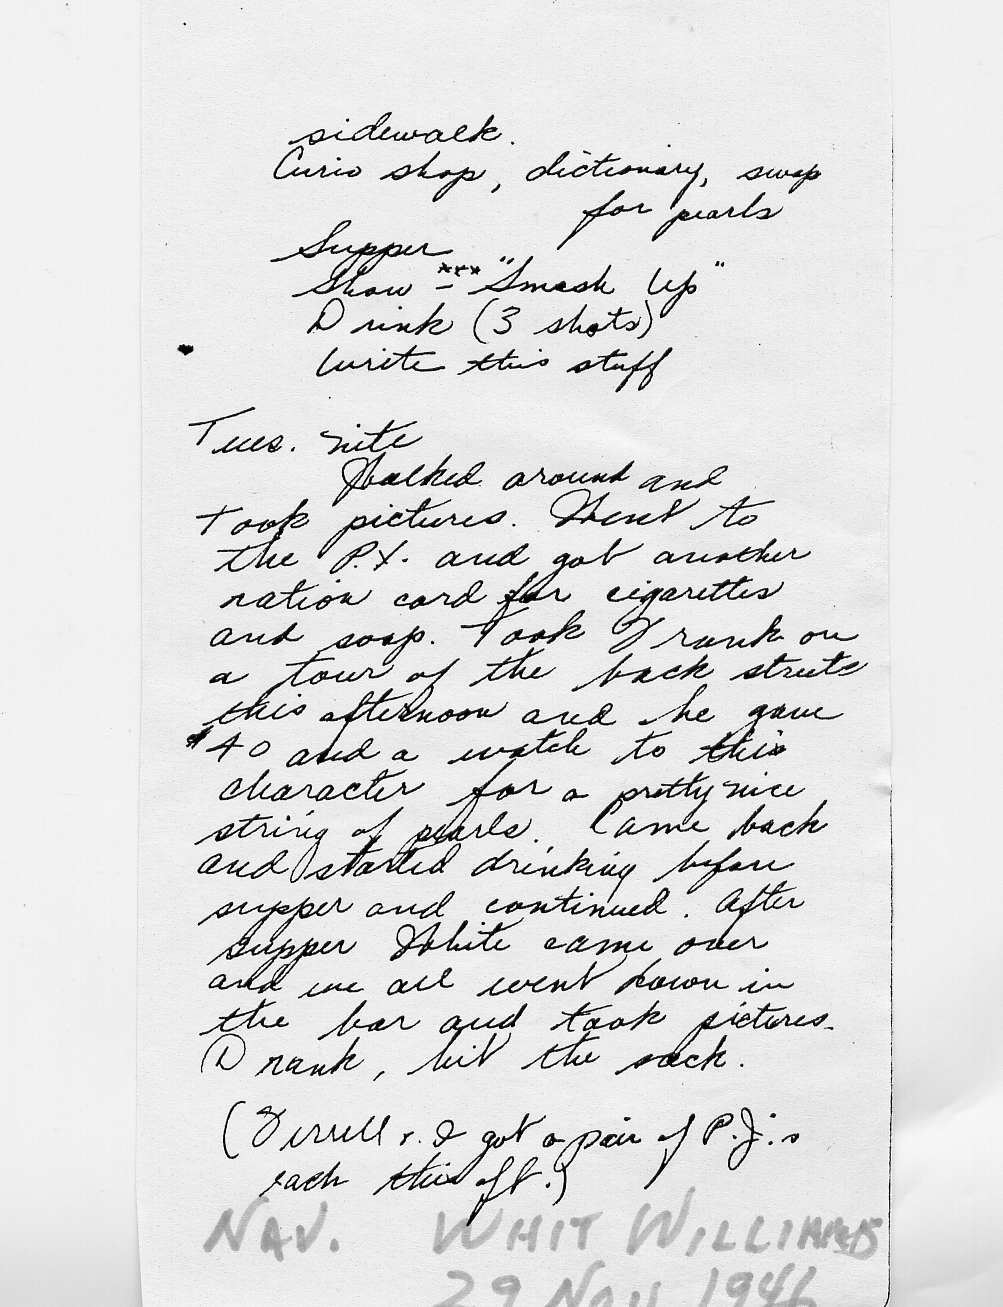 sidewalk.
Curio shop, dictionary, swap
for pearls
Supper
Show - *** "Smash Up"
Drink (3 shots)
Write this stuff
Tues. nite
Walked around and
took pictures. Went to
the P.X. and got another
ration card for cigarettes
and soap. Took Frank on
a tour of the back streets
this afternoon and he gave
$40 and a watch to this
character for a pretty nice
string of pearls. Came back
and started drinking before
supper and continued. After
supper White came over
and we all went down in
the bar and took pictures.
Drank, hit the sack.
(Ferrell & I got a pair of P.J.'s
each this aft.)
NAV. WHIT WILLIAMS
29 NOV 1946